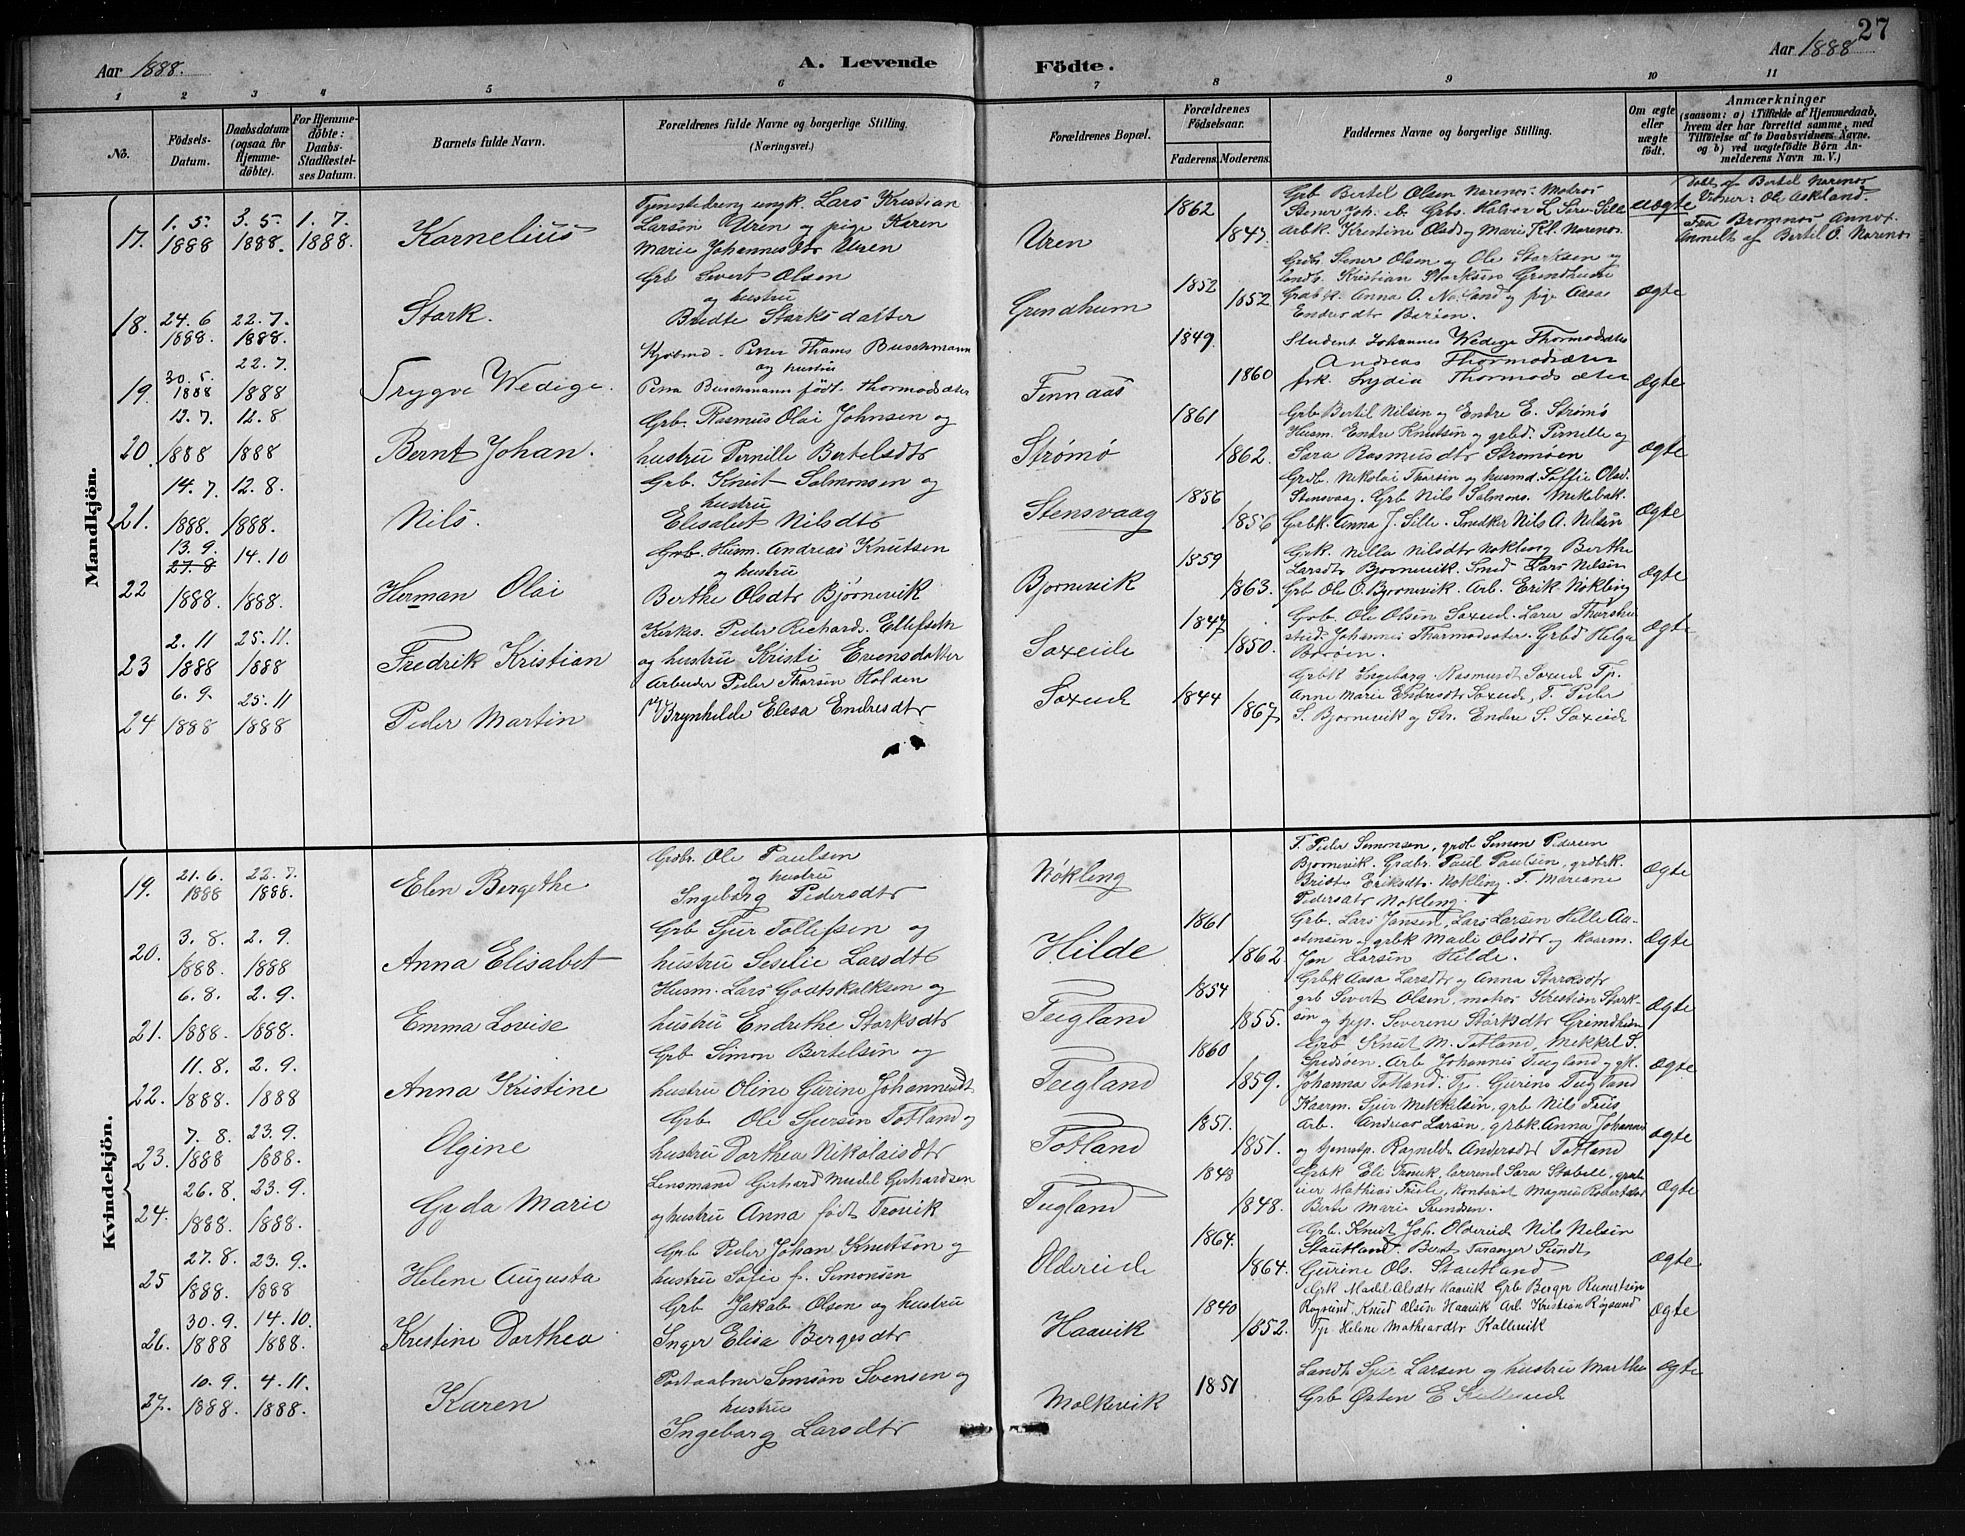 27
Aar 1888.
A. Levende
Fødte.
Aar 1888
1 2 3 4 5 6 7 8 9 10 11
No.
Födsels-Datum.
Daabsdatum (ogsaa for Hjemmedöbte).
For Hjemmedöbte: Daabs-Stadfæstelses Datum.
Barnets fulde Navn.
Forældrenes fulde Navne og borgerlige Stilling.
(Næringsvei.)
Forældrenes Bopæl.
Forældrenes Födselsaar.
Faderens. Moderens.
Faddernes Navne og borgerlige Stilling.
Om ægte eller uægte födt.
Anmærkninger
(saasom: a) i Tilfælde af Hjemmedaab, hvem der har forrettet samme, med Tilföielse af to Daabsvidners Navne, og b) ved uægtefödte Börn Anmelderens Navn m. V.)
Mandkjön.
17. 1. 5. 1888 3. 5. 1888. 1. 7. 1888.
Kornelius
Tjenestedreng ungk. Lars Kristian
Larsen Uren og pige Karen
Marie Johannesdtr Uren
Uren
1862 1847.
Grb Bertil Olsen Marenos. Matros
Arbk. Kristine Olsd og Marie
uægte
Døbt af Bertel
Vidner: Ole Aekland.
Fra Bremnes Annex.
Anmeldt af Bertel O.
18. 24. 6 1888. 22. 7. 1888.
Stark.
Grb Severt Olsen
og hustru
Bredte Starksdatter
Grindhum
1852 1852
Grdbr. Stener Olsen og Ole Starksen og
Kristian Starksen Grindhum
Anna O. og pige Aasa
Endresdtr
ægte
19. 30. 5. 1888 22. 7. 1888
Trygve Wedige.
Kjøbmd. Peter Thams Buschmann
og hustru
Petra Buschmann født Thormodsæter
Finnaas
1849. 1860
Student Johannes Wedige Thormodsæter
Andreas Thormodsæter
frk. Lydia Thormodsæter
ægte
20. 12. 7. 1888 12. 8 1888
Bernt Johan.
Grb. Rasmus Olai Johnsen og
hustru Pernille Bertelsdtr
Strømø
1861 1862.
Grb Bertil Nilsen og Endre E. Strømø
Husm. Endre Knutsen og grbd. Pernille og
Sara Rasmusdtr Strømøen
ægte
21. 14. 7. 1888. 12. 8. 1888.
Nils.
Grb. Knut Salmonsen og
hustru
Elisabet Nilsdtr
Stensvaag
1856 1856
Grdb. Nikolai Thorsen og husmd. Soffie Olsd.
Stensvaag. Grb Nils Salmons. Mekebak.
Grbk. Anna J. Sille. Snedker Nils A. Nilsen
ægte
22 13. 9. 27. 8 1888. 14. 10 1888.
Herman Olai
Grb. Husm. Andreas Knutsen
og hustru
Berthe Olsdtr Bjørnevik
Bjornevik
1859 1863.
Grk. Nilla Nilsdtr Nokling Berthe
Larsdtr Bjornevik. Smed Lars Nilsen
Grb Ole O. Bjornevik. Arb. Erik Nokling
ægte
23 2. 11 1888 25. 11. 1888
Fredrik Kristian
Kirkes. Peder Richards. Ellefsen
og hustru Kristi Evensdatter
Soxeide
1847 1850.
Grb. Ole Olsen Soxeid. Lærer
stud. Johannes Thormodsæter. Grbd Helga
ægte
24 6. 9. 1888 25. 11 1888
Peder Martin
Arbeider Peder Thorsen Holden
Brynhilde Elesa Endresdtr
Soxeide
1844 1867
Grbk Ingeborg Rasmusdt Soxeid Tp.
Anne Marie Endresdtr Soxeid, T. Peder
S. Bjornevik og Endre S. Soxeide
Kvindekjön.
19. 21. 6. 1888 22. 7. 1888.
Elen Bergethe
Grdbr. Ole Paulsen
og hustru
Ingeborg Pedersdtr
Nøkling
T. Peder Simonsen, grdb Simon Pedersen
Bjornevik. Grdbr. Paul Paulsen, grdbrk.
Brithe Eriksdtr. Nokling. T. Mariane
Pedersdtr Nokling.
ægte
20. 3. 8. 1888. 2. 9. 1888
Anna Elisabet
Grb Sjur Tollefsen og
hustru Seselie Larsdtr
Hilde
1861 1862
Grb. Lars Jansen, Lars Larsen Hille Aa-
stensen grbk Madli Olsdtr og
Jon Larsen Hilde.
ægte
21. 6. 8. 1888. 2. 9. 1888.
Emma Lovise
Husm. Lars Godtskalksen og
hustru Endrethe Starksdtr
Tugland
1854 1855.
Grbk Aasa Larsdtr og Anna Starksdtr
grb Severt Olsen, matros Kristian Stark-
sen og tjp. Severine Starksdtr Grindheim
ægte
22. 11. 8. 1888. 2. 9. 1888
Anna Kristine
Grb Simon Bertelsen og
hustru Oline Gurine Johannesdt
Tugland
1860 1859.
Grb Knut M. Totland, Mekkel S.
Arb Johannes Tugland og
Johanna Totland. Tp. Gurine Tugland
ægte
23. 7. 8. 1888 23. 9. 1888.
Olgine
Grb. Ole Sjursen Totland og
hustru Dorthea Nikolaisdtr
Totland
1851. 1851.
Kaarm. Sjur Mekkelsen, grb Nils Friis
Arb. Andreas Larsen, grbk Anna Johannes
og tjenestp. Ragnild Andersdtr Totland
ægte
24. 26. 8. 1888. 23. 9. 1888.
Gyda Marie
Lensmand Gerhard Gerhardsen
og hustru Anna født Trovik
Tugland
1848 1848.
Grbk Eli Trovik, lærerind Sara Stabell,
Mathias Friile, kontorist Magnus Robertsen
Berte Marie Svendsen.
ægte
25 27. 8. 1888. 23. 9. 1888
Helene Augusta
Grb Peder Johan Knutson og
hustru Sofie f. Simonsen
Oldereide
1864. 1864.
Grb. Knut Joh. Oldereid Nils Nelsen
Stautland. Bernt Taranger Sundt
Gurine Ols. Stautland
ægte
26. 30. 9. 1888 14. 10. 1888.
Kristine Dorthea
Grb Jakob Olsen og hustru
Inger Elisa Bergesdtr
Haavik
1840 1852.
Madel Olsdtr Haavik Grb Berger Runertsen
Røgsund, Knud Olsen Haavik Arb. Kristian Røgsund
Tp. Helene Mathiasdtr Kallevik
ægte
27. 10. 9. 1888. 4. 11. 1888.
Karen
Postaabner Samson Svensen og
hustru
Ingeborg Larsdtr
Molkevik
1851
Landh Sjur Larsen og hustru Marthe
Grb Østen E
ægte